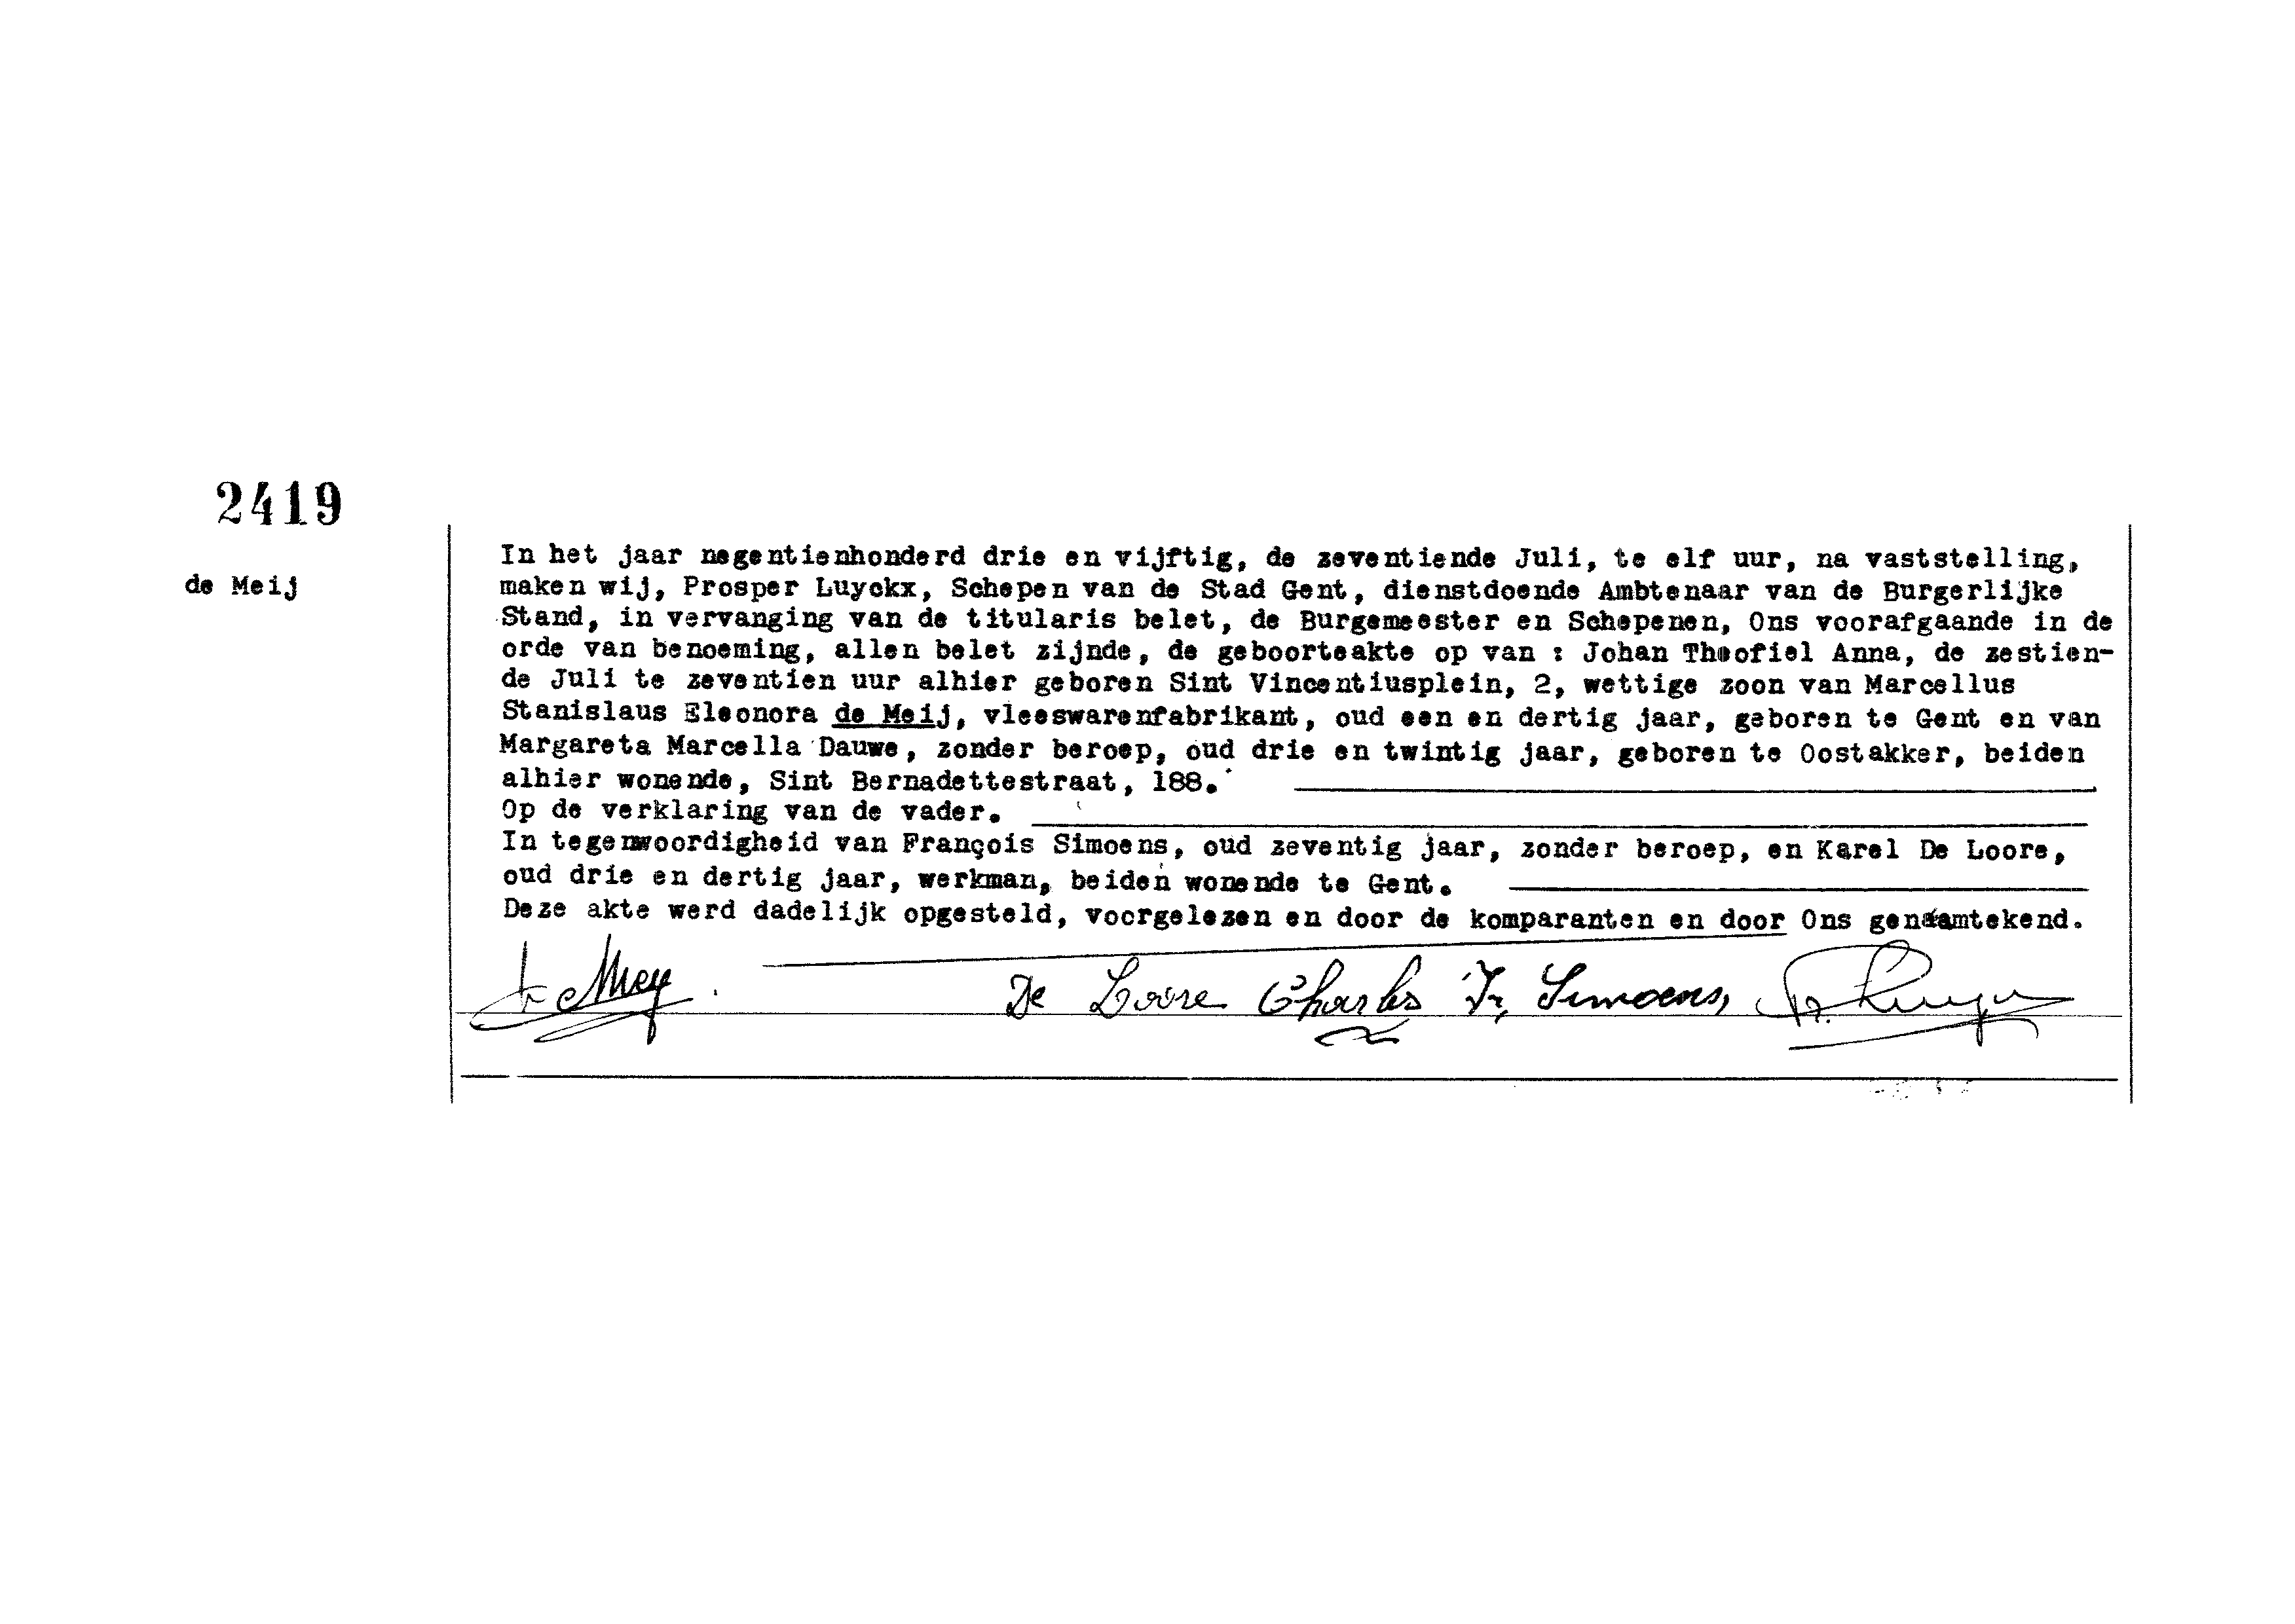 2419
de Meij
In het jaar negentienhonderd drie en vijftig, de zeventiende Juli, te elf uur, na vaststelling,
maken wij, Prosper Luyckx, Schepen van de Stad Gent, dienstdoende Ambtenaar van de Burgerlijke
Stand, in vervanging van de titularis belet, de Burgemeester en Schepenen, Ons voorafgaande in de
orde van benoeming, allen belet zijnde, de geboorteakte op van : Johan Theofiel Anna, de zestien-
de Juli te zeventien uur alhier geboren Sint Vincentiusplein, 2, wettige zoon van Marcellus
Stanislaus Eleonora de Meij, vleeswarenfabrikant, oud een en dertig jaar, geboren te Gent en van
Margareta Marcella Dauwe, zonder beroep, oud drie en twintig jaar, geboren te Oostakker, beiden
alhier wonende, Sint Bernadettestraat, 188.
Op de verklaring van de vader.
In tegenwoordigheid van François Simoens, oud zeventig jaar, zonder beroep, en Karel De Loore,
oud drie en dertig jaar, werkman, beiden wonende te Gent.
Deze akte werd dadelijk opgesteld, voorgelezen en door de komparanten en door Ons genaamtekend.
de Mey. De Loore Charles Fr, Simoens,